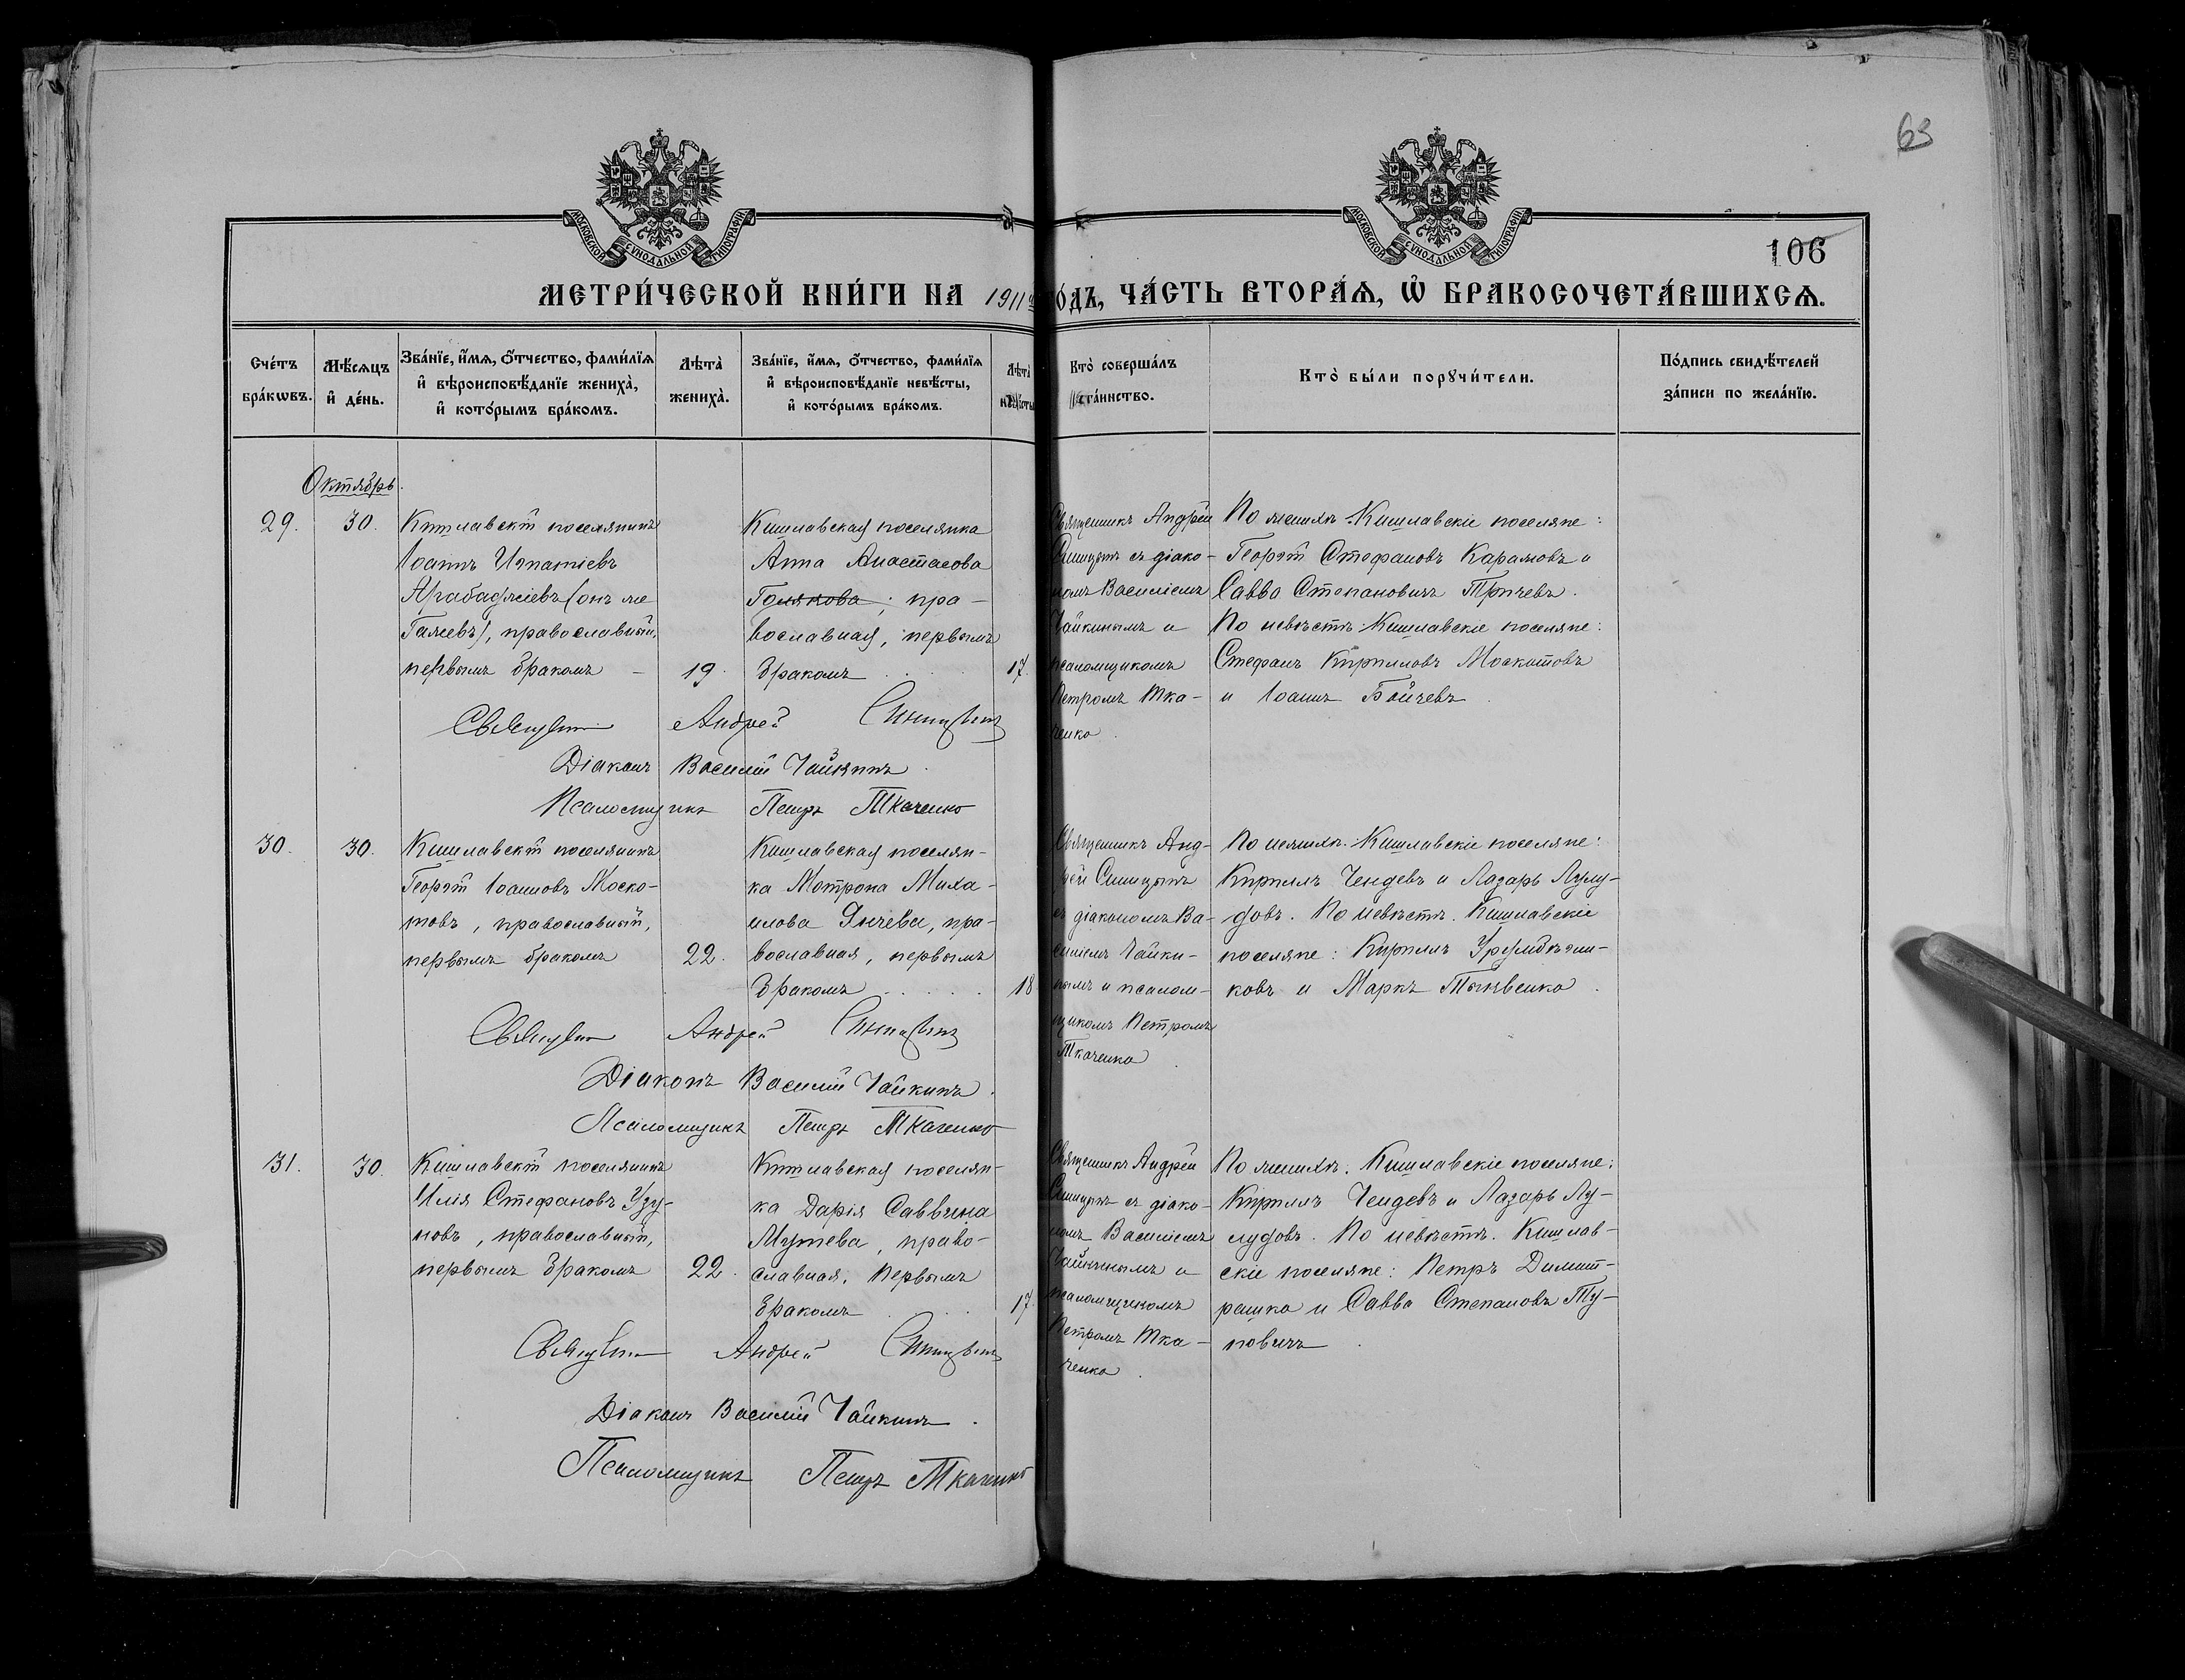 63
МОСКОВСКОЙ СѴНОДАЛЬНОЙ ТИПОГРАФІИ
МОСКОВСКОЙ СѴНОДАЛЬНОЙ ТИПОГРАФІИ
106
МЕТРИ́ЧЕСКОЙ КНИ́ГИ НА 1911 ГО́ДЪ, ЧА́СТЬ ВТОРА́Ѧ, Ѡ҆ БРАКОСОЧЕТА́ВШИХСѦ.
Сче́тъ бра́кѡвъ.
Мѣ́сѧцъ и҆ де́нь.
Зва́нїе, и҆́мѧ, ѻ҆́тчество, фами́лїѧ
и҆ вѣроисповѣ́данїе жениха̀,
и҆ кото́рымъ бра́комъ.
Лѣта̀ жениха̀.
Зва́нїе, и҆́мѧ, ѻ҆́тчество, фами́лїѧ
и҆ вѣроисповѣ́данїе невѣ́сты,
и҆ кото́рымъ бра́комъ.
Лѣта̀ невѣ́сты
Кто̀ соверша́лъ
та́инство.
Кто̀ бы́ли порꙋчи́тели.
По́дпись свидѣ́телей
за́писи по жела́нїю.
Октябрь.
29. 30.
Кишлавскій поселянинъ
Іоаннъ Игнатіевъ
Арабаджіевъ (онъ же
Гамевъ), православный,
первымъ бракомъ — 19.
Кишлавская поселянка
Анна Анастасова
Голякова; пра-
вославная, первымъ
бракомъ 17.
Священникъ Андрей
Синицынъ съ діако-
номъ Василіемъ
Чайкинымъ и
псаломщикомъ
Петромъ Тка-
ченко.
По женихѣ: Кишлавскіе поселяне:
Георгій Стефановъ Карамовъ и
Савва Степановичъ Тричевъ.
По невѣстѣ: Кишлавскіе поселяне:
Стефанъ Кирилловъ Москотовъ
и Іоаннъ Бойчевъ.
Священникъ Андрей Синицынъ
Діаконъ Василій Чайкинъ.
Псаломщикъ Петръ Ткаченко
30. 30.
Кишлавскій поселянинъ
Георгій Іоанновъ Моско-
товъ, православный,
первымъ бракомъ 22.
Кишлавская поселян-
ка Мотрона Миха-
илова Янчева, пра-
вославная, первымъ
бракомъ 18
Священникъ Анд-
рей Синицынъ
съ діакономъ Ва-
силіемъ Чайки-
нымъ и псалом-
щикомъ Петромъ
Ткаченко.
По женихѣ: Кишлавскіе поселяне:
Кириллъ Чендевъ и Лазарь Лулу-
довъ. По невѣстѣ. Кишлавскіе
поселяне: Кириллъ
ковъ и Маркъ
Священникъ Андрей Синицынъ
Діаконъ Василій Чайкинъ.
Псаломщикъ Петръ Ткаченко
31. 30.
Кишлавскій поселянинъ
Илія Стефановъ Узу-
новъ, православный,
первымъ бракомъ 22.
Кишлавская поселян-
ка Дарія Саввина
Мутева, право-
славная, первымъ
бракомъ 17.
Священникъ Андрей
Синицынъ съ діако-
номъ Василіемъ
Чайкинымъ и
псаломщикомъ
Петромъ Тка-
ченко.
По женихѣ: Кишлавскіе поселяне:
Кириллъ Чендевъ и Лазарь Лу-
лудовъ. По невѣстѣ. Кишлав-
скіе поселяне: Петръ Димит-
рашко и Савва Степановъ Ту-
новичъ.
Священникъ Андрей Синицынъ
Діаконъ Василій Чайкинъ.
Псаломщикъ Петръ Ткаченко